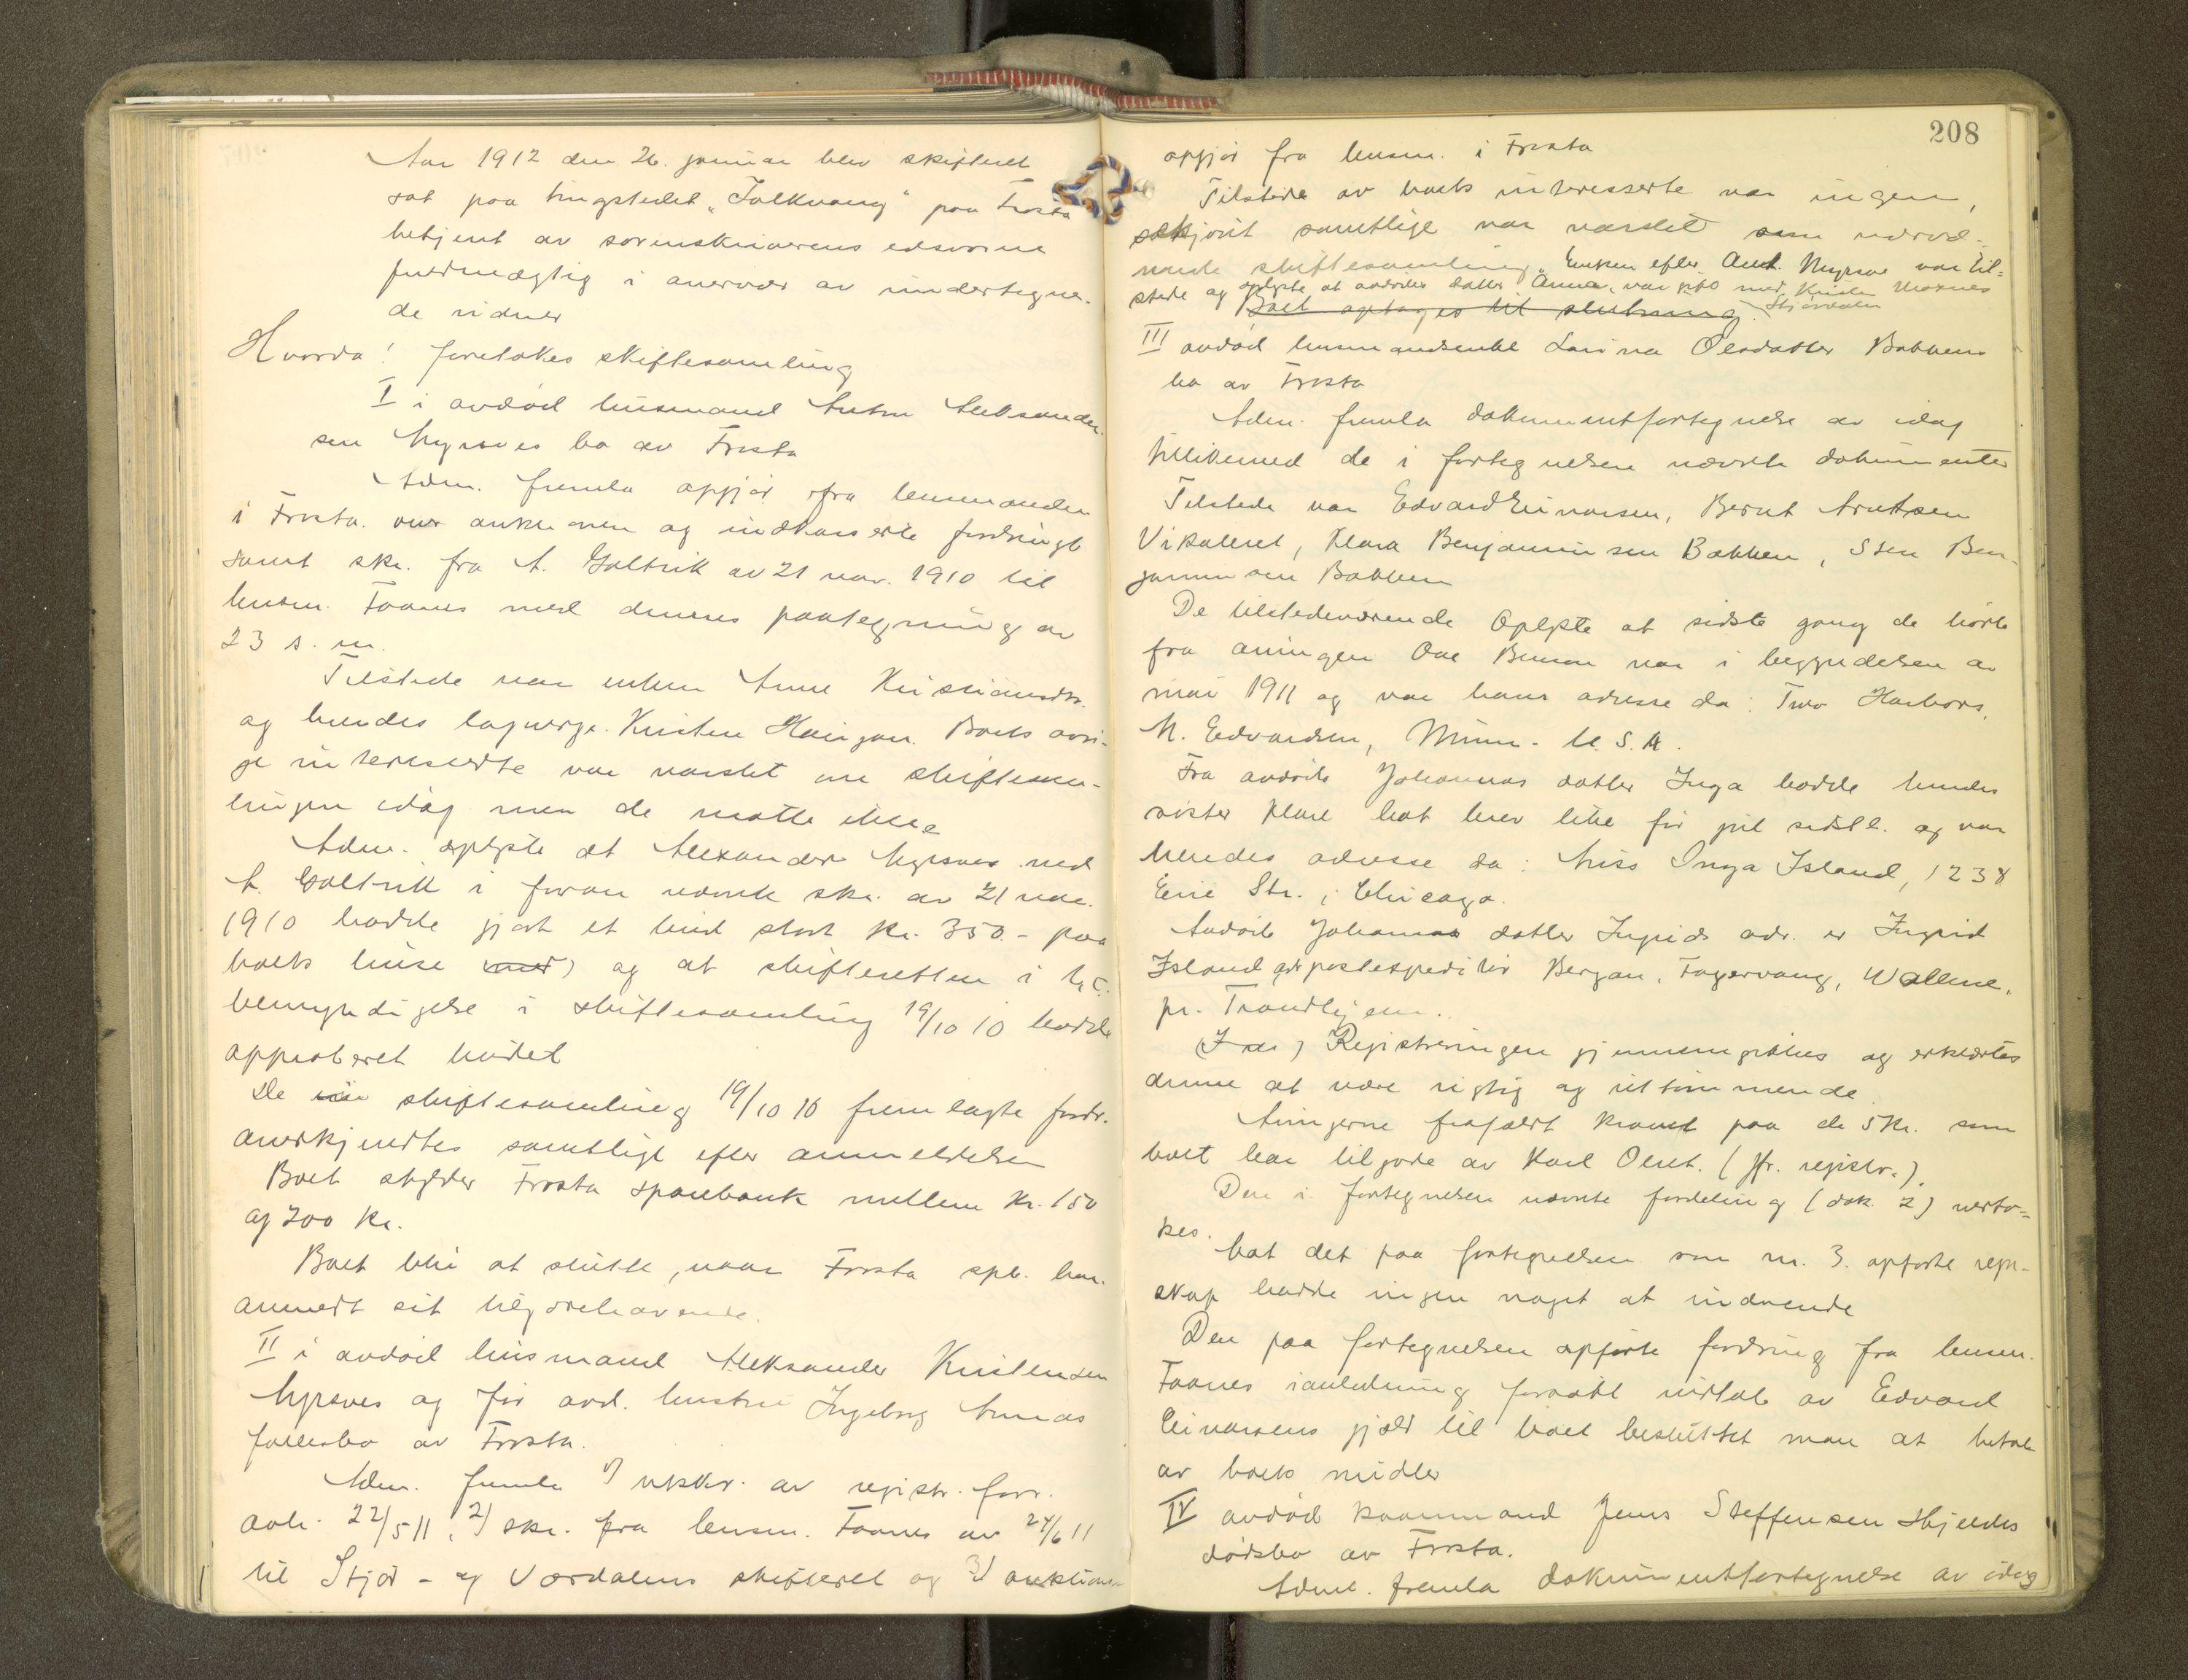 Aar 1912 den 26. januar blev skifteret
sat paa tingstedet "Folkvang" paa Frosta
betjent av sorenskriverens edsvorne
fuldmægtig i overvær av undertegne-
de vidner
Hvorda! foretokes skiftesamling
I i avdød husmand Anton Aleksander-
sen Myraves bo av Frosta
Adm. fremla opgjør fra lensmanden
i Frosta over auktionen og indkasserte fordringer
samt skr. fra A. Galtvik av 21 nov. 1910 til
lensm. Faanes med dennes paategning av
23 s. m.
Tilstede var enken Anne Kristiansdtr.
og hendes lagverge Kristen Haugan. Boets øvri-
ge interesserte var varslet om skiftesam-
lingen idag men de møtte ikke
Adm. oplyste at Alexander Myraves ved
A. Galtvik i foran nævnte skr. av 21 nov.
1910 hadde gjort et bud stort kr. 350.- paa
boets huse (med) og at skifteretten i h.t.
bemyndigelse i skiftesamling 19/10 10 hadde
approberet budet
De i skiftesamling 19/10 10 fremlagte fordr.
anerkjendtes samtlige efter anmeldelsen
Boet skylder Frosta sparebank mellem kr. 150
og 200 kr.
Boet blir at slutte, naar Frosta spb. har
anmeldt sit tilgodehavende.
II i avdød husmand Aleksander Kristensen
Myraves og før avd. hustru Ingeborg Annas
fællesbo av Frosta.
Adm. fremla 1) utskr. av registr. forr.
avh. 22/5 11, 2) skr. fra lensm. Faanes av 24/6 11
til Stjør- og Værdalens skifteret og 3) auktions-
208
opgjør fra lensm. i Frosta
Tilstede av boets interesserte var ingen,
skjønt samtlige var varslet om nærvæ-
rende skiftesamling. Enken efter Ant. Myrave var til-
stede og oplyste at avdødes datter Anna, var gift med Kristen Moxnes
Boet optages til slutning. Stjørdalen
III avdød husmandsenke Larina Olsdatter Bakkens
bo av Frosta
Adm. fremla dokumentfortegnelse av idag
tillikemed de i fortegnelsen nævnte dokumenter
Tilstede var Edvard Einarsen, Bernt Arntsen
Vikaleret, Klara Benjaminsen Bakken, Sten Ben-
jaminsen Bakken
De tilstedeværende oplyste at sidste gang de hørte
fra arvingen Ove Benson var i begyndelsen av
mai 1911 og var hans adresse da: Two Harbors,
M. Edvardsen, Minn. U. S. A.
Fra avdøde Johannas datter Inga hadde hendes
søster Klara hat brev like før jul sidstl. og var
hendes adresse da: Miss Inga Island, 1238
Erie Str. i Chicago.
Avdøde Johannas datter Ingrids adr. er Ingrid
Island adr postekspeditør Bergan, Fagervang, Wallene,
pr. Trondhjem.
Registreringen gjennemgikkes og erklærtes
denne at være rigtig og uttømmende
Arvingerne frafaldt kravet paa de 5 kr. som
boet har tilgode av Karl Olset. (jfr. registr.).
Den i fortegnelsen nævnte fordeling (dok. 2) vedto-
kes.
Mot det paa fortegnelsen som nr. 3. opførte regn-
skap hadde ingen noget at indvende
Den paa fortegnelsen opførte fordring fra lensm.
Faanes i anledning forsøkt indtale av Edvard
Einarsens gjæld til boet besluttet man at betale
av boets midler
IV avdød kaarmand Jens Steffensen Hjeldes
dødsbo av Frosta.
Adm. fremla dokumentfortegnelse av idag